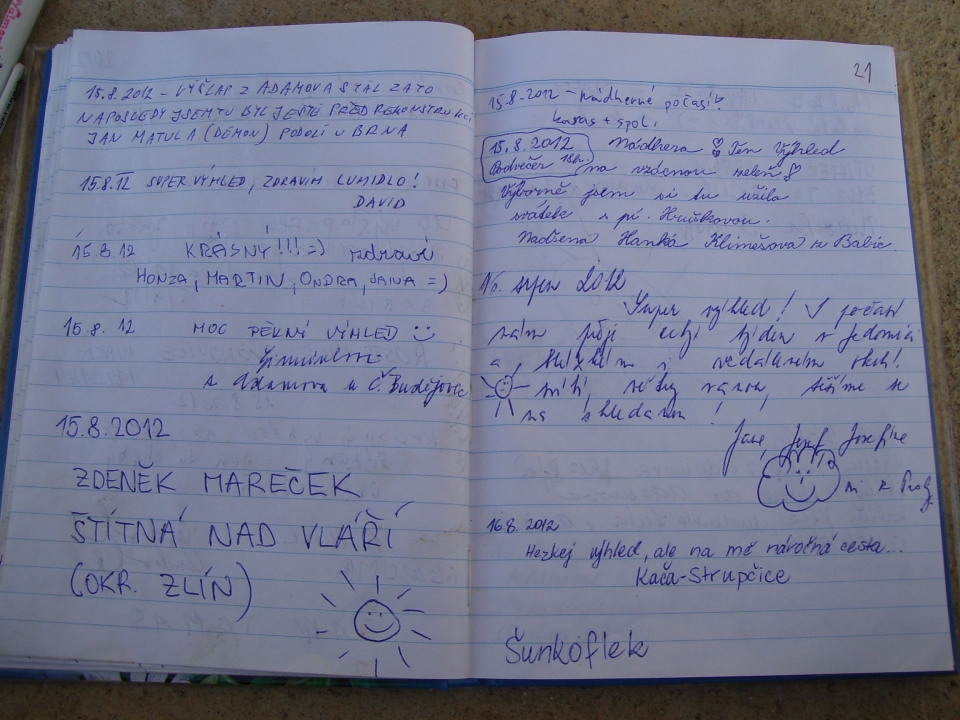 15.8.2012 - VÝŠLAP Z ADAMOVA STÁL ZATO
NAPOSLEDY JSEM TU BYL JEŠTĚ PŘED REKONSTRUKCÍ
JAN MATULA (DÉMON) PODOLÍ U BRNA
15.8.12 SUPER VÝHLED, ZDRAVÍM LUMIDLO!
DAVID
15.8.12 KRÁSNÝ!!! =) zdraví
HONZA, MARTIN, ONDRA, =)
15.8.12 MOC PĚKNÝ VÝHLED
z Adamova a Č. Budějovic
15.8.2012
ZDENĚK MAREČEK
ŠTÍTNÁ NAD VLÁŘÍ
(OKR. ZLÍN)
21
15.8.2012 - nádherné počasí!
karas + spol.
15.8.2012 Nádhera Ten výhled
Podvečer 18h. na vzácnou zeleň
Výborně jsem si tu užila
svátek s pí. Hruškovou.
Nadšená Hanka Klimešová ze Babic
srpen 2012
Super výhled! V počasí
nám přeje celý týden v Jedovnici
a i nedalekém okolí!
se
na shledanou!
Josef Josefine
16.8.2012
Hezkej výhled, ale na mě náročná cesta...
Kača-Strupčice
Šunkoflek